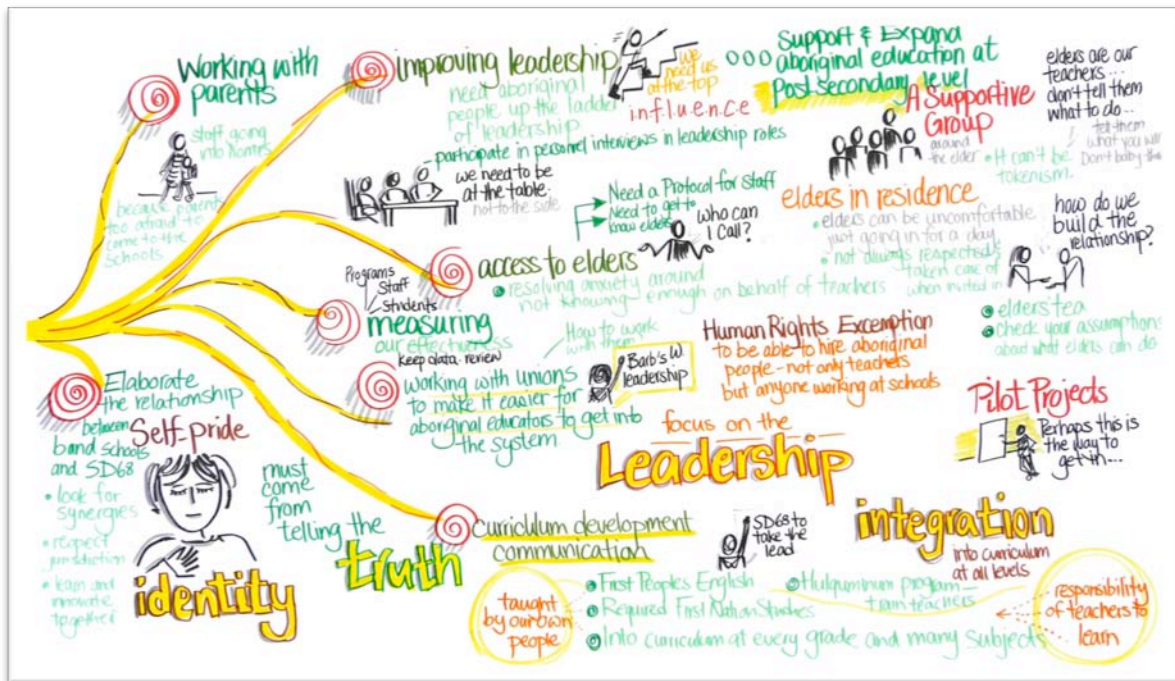 Working with
parents
staff going
into homes
because parents
too afraid to
come to the
schools
improving leadership
need aboriginal
people up the ladder
of leadership
we
need us
at the top
influence
participate in personnel interviews in leadership roles
we need to be
at the table
not to the side
Support & Expand
aboriginal education at
Post secondary level
A Supportive
Group
around
the elder
• It can't be
tokenism.
elders are our
teachers...
don't tell them
what to do...
tell them
what you will
Don't baby
Need a Protocol for Staff
Need to get to
know elders
who can
I call?
access to elders
resolving anxiety around
not knowing enough on behalf of teachers
elders in residence
• elders can be uncomfortable
just going in for a day
• not always respected &
taken care of
when invited in
how do we
build the
relationship?
elders' tea
check your assumptions
about what elders can do
Programs
Staff
Students
measuring
our effectiveness
keep data - review
How to work
with them
working with unions
to make it easier for
aboriginal educators to get into
the system
Barb's W.
leadership
Human Rights Excemption
to be able to hire aboriginal
people - not only teachers
but anyone working at schools
focus on the
Leadership
Pilot Projects
Perhaps this is
the way to
get in...
Elaborate
the relationship
between
band schools
and SD68
• look for
synergies
• respect
jurisdiction
• learn and
innovate
together
Self-pride
identity
must
come
from
telling the
truth
curriculum development
communication
SD68 to
take the
lead
integration
into curriculum
at all levels
taught
by our own
people
First Peoples English
Required First Nation Studies
Into curriculum at every grade and many subjects
Hulquminum program -
train teachers
responsibility
of teachers to
learn